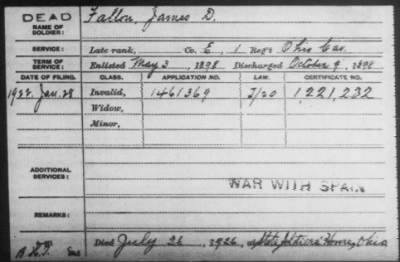 DEAD Fallon, James D.
NAME OF SOLDIER:
SERVICE: Late rank, Co. E, 1 Reg't Ohio Cav.
TERM OF SERVICE: Enlisted May 3, 1898 Discharged October 9, 1898
DATE OF FILING. CLASS. APPLICATION NO. LAW. CERTIFICATE NO.
1922. Jan. 28 Invalid, 1461369 1,221,232
Widow,
Minor,
ADDITIONAL SERVICES:
WAR WITH SPAIN
REMARKS:
Died July 26, 1926, at State Soldiers' Home, Ohio